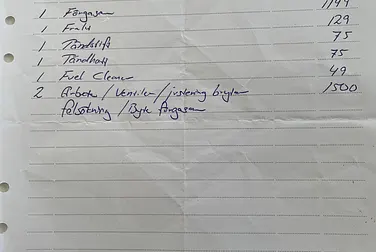 1 Förgasare 1199
1 Frakt 129
1 Tändstift 75
1 Tändhatt 75
1 Fuel Cleaner 49
2 Arbete / Ventiler / justering 1500
felsökning / Byte förgasare